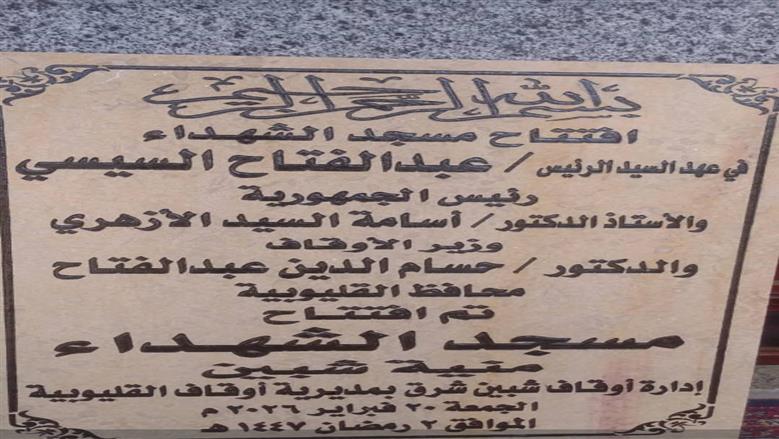 بسم الله الرحمن الرحيم
افتتاح مسجد الشهداء
في عهد السيد الرئيس / عبدالفتاح السيسي
رئيس الجمهورية
والأستاذ الدكتور / أسامة السيد الأزهري
وزير الأوقاف
والدكتور / حسام الدين عبدالفتاح
محافظ القليوبية
تم افتتاح
مسجد الشهداء
منية شبين
إدارة أوقاف شبين شرق بمديرية أوقاف القليوبية
الجمعة ٢٠ فبراير ٢٠٢٦ م
الموافق ٢ رمضان ١٤٤٧ هـ